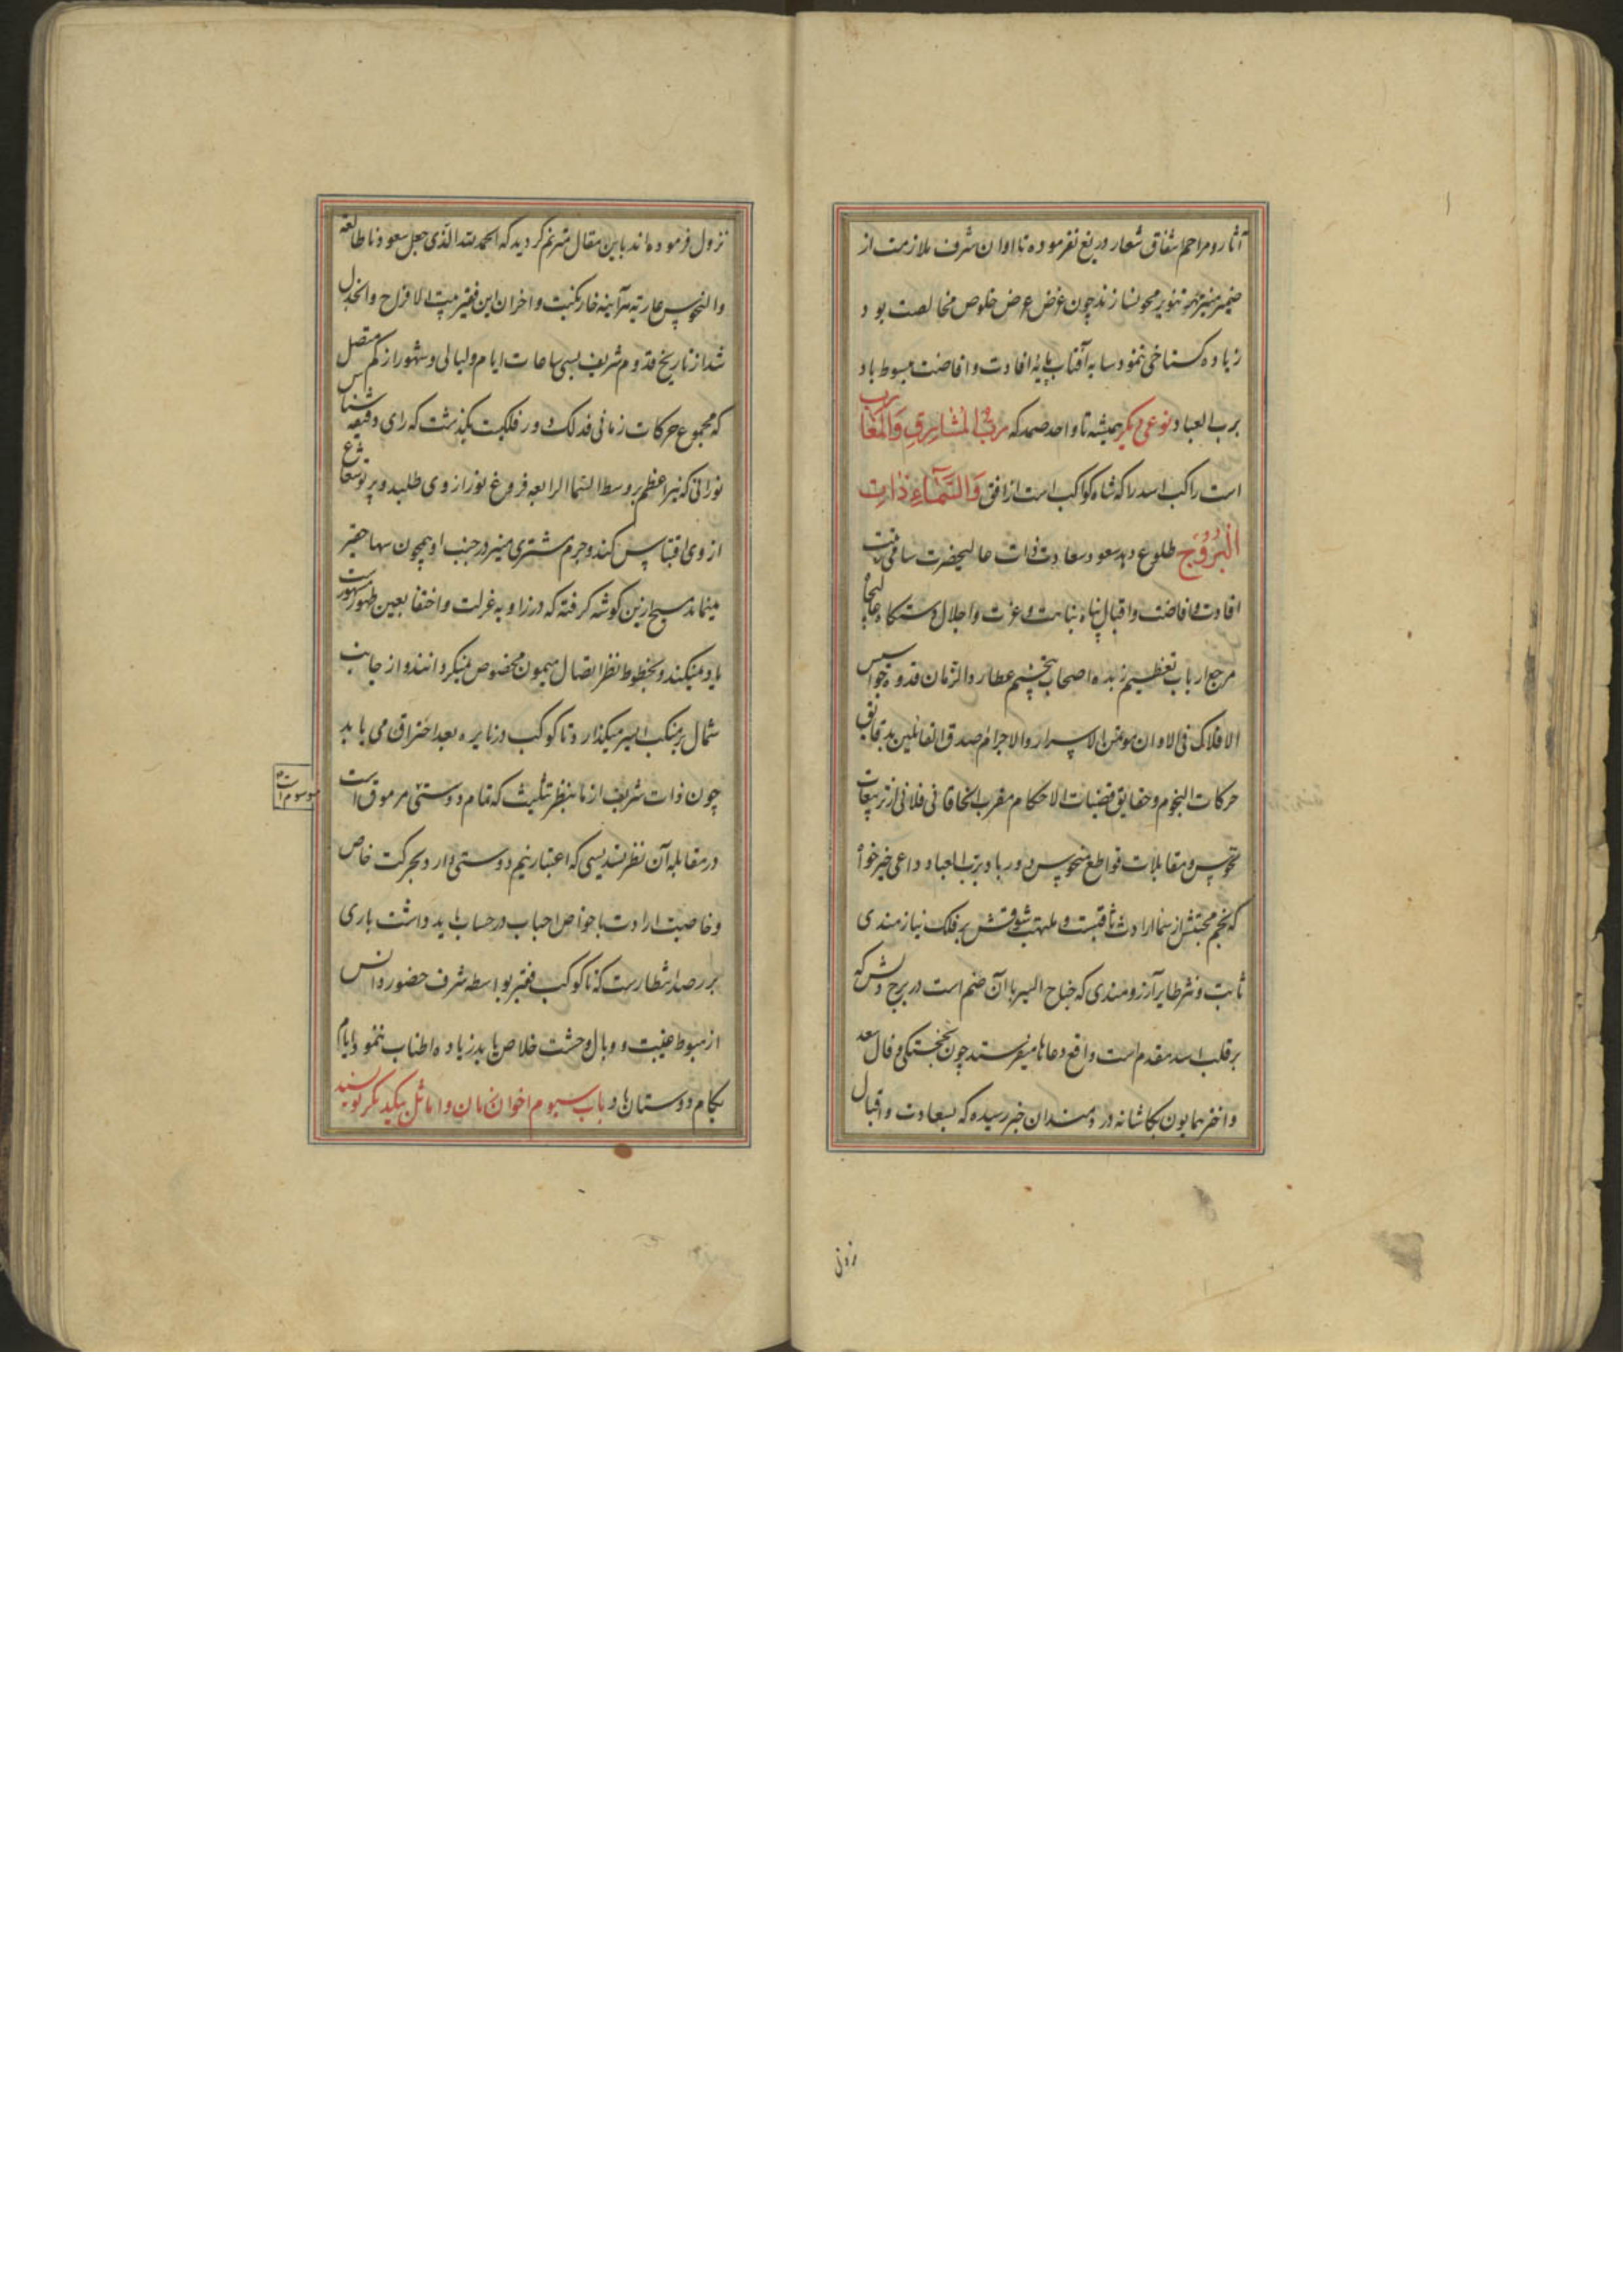 آثار و مراحم اشفاق شعار دریغ نفرموده تا اوان شرف ملازمت از
ضمیر منیر مهر تنویر محو نسازند چون غرض عرض خلوص مخالصت بود
زیاده کستاخی ننمود سایه آفتاب پایهٔ افادت و افاضت مبسوط باد
برب العباد نوعی دیکر همیشه تا واحد صمد که رَبُّ الْمَشَارِقِ وَالْمَغَارِبِ
است راکب اسد را که شاه کواکب است از افق وَالسَّمَآءِ ذَاتِ
الْبُرُوجِ طلوع دهد سعود سعادت ذات عالیحضرت سامی منقبت
افادت و افاضت و اقبال پناه نباهت و عزت و اجلال دستکاه عالیجاه
مرجع ارباب تعظیم زبده اصحاب تنجیم عطارد الزمان قدوة جواسیس
الافلاک فی الاوان مؤتمن الاسرار و الاجرام صدق القائلین بدقایق
حرکات النجوم و حقایق قضیات الاحکام مقرب الخاقانی فلانی از تربیعات
نحوس و مقابلات قواطع منحوس دور باد برب العباد داعی خیرخواه
که نجم محبتش از سما ارادت ثاقبست و ملهتب شوقش بر فلک نیازمندی
ثابت و نسر طایر آرزومندی که جناح السیر با آن ضم است در برج دلش که
بر قلب اسد مقدم است واقع دعاها میفرستد چون خجستکی فال سعد
و اختر همایون بکاشانه دردمندان خبر رسیده که بسعادت و اقبال
نزول
نزول فرموده اند باین مقال مترنم کردید که الحمد لله الذی جعل سعودنا طالعة
والنحوس غاربة هرآینه خار نکبت و احزان این فقیر مبت الافراح و الجذل
شد از تاریخ قدوم شریف بسی ساعات ایام و لیالی و شهور از کم متصل
که مجموع حرکات زمانی فذلک دور فلکیت بکذشت که رای دقیقه شناس
نورانی که نیر اعظم بر وسط السما الرابعه فروغ نور از وی طلبد و پرتو شعاع
از وی اقتباس کند و جرم مشتری منیر در جنب او همچون سها حقیر
مینماید هیچ ازین کوشه کرفته که در زاویه عزلت و اختفا بعین ظهور مشهورست
یاد میکند و بخطوط نظر اتصال میمون مخصوص میکردانند و از جانب
شمال بر منکب ایسر میکذارد تا کوکب در نایره بعد احتراق می یابد
چون ذات شریف از ما بنظر تثلیث که تمام دوستی مرموق است
موسوم است
در مقابله آن نظر تسدیسی که اعتبار نیم دوستی دارد بحرکت خاص
و خاصیت ارادت با خواص احباب در حساب باید داشت باری
بر رصد انتظارست که تا کوکب فقیر بواسطه شرف حضور و انس
از هبوط غیبت و وبال وحشت خلاص یابد زیاده اطناب ننمود ایام
بکام دوستان باد باب سیوم اخوان زمان و اماثل بیکدیکر نویسند